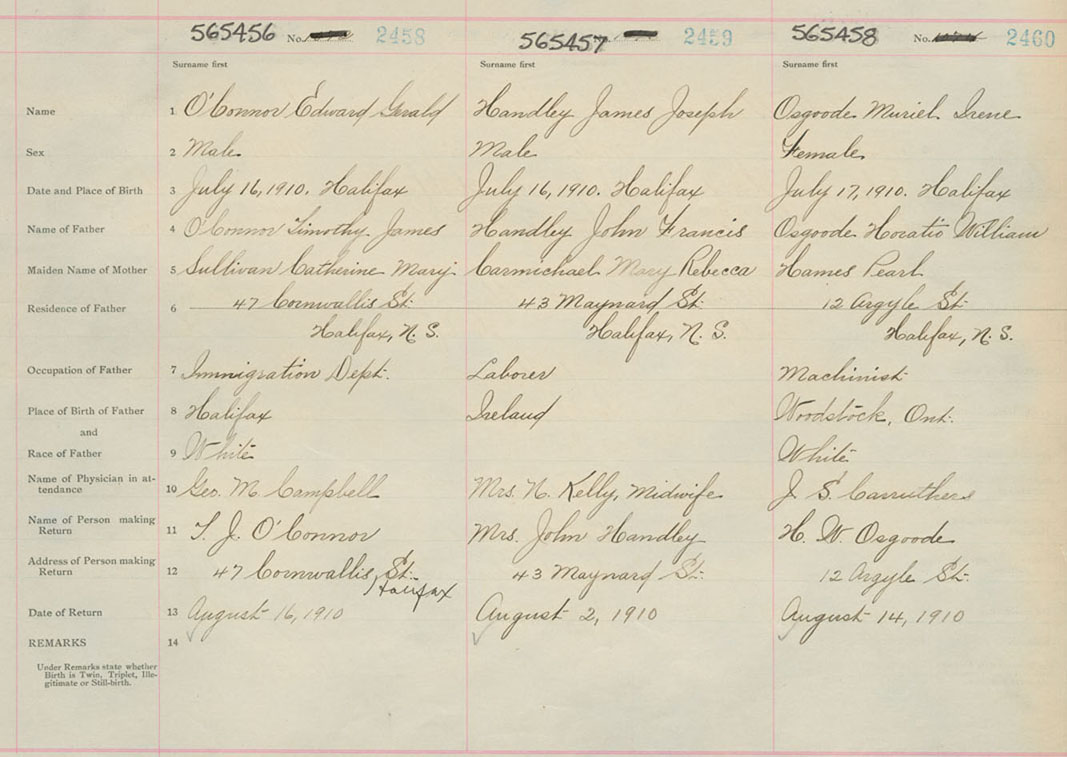 565456 No. 2458 565457 2459 565458 No. 2460
Surname first Surname first Surname first
Name 1 O'Connor Edward Gerald Handley James Joseph Osgoode Muriel Irene
Sex 2 Male Male Female
Date and Place of Birth 3 July 16, 1910. Halifax July 16, 1910. Halifax July 17, 1910. Halifax
Name of Father 4 O'Connor Timothy James Handley John Francis Osgoode Horatio William
Maiden Name of Mother 5 Sullivan Catherine Mary Carmichael Mary Rebecca Hames Pearl
Residence of Father 6 47 Cornwallis St. 43 Maynard St. 12 Argyle St.
Halifax, N. S. Halifax, N. S. Halifax, N. S.
Occupation of Father 7 Immigration Dept. Laborer Machinist
Place of Birth of Father 8 Halifax Ireland Woodstock, Ont.
and
Race of Father 9 White White
Name of Physician in at-
tendance 10 Geo. M. Campbell Mrs. N. Kelly, Midwife J. S. Carruthers
Name of Person making
Return 11 T. J. O'Connor Mrs. John Handley H. W. Osgoode
Address of Person making
Return 12 47 Cornwallis St. 43 Maynard St. 12 Argyle St.
Halifax
Date of Return 13 August 16, 1910 August 2, 1910 August 14, 1910
REMARKS 14
Under Remarks state whether
Birth is Twin, Triplet, Ille-
gitimate or Still-birth.